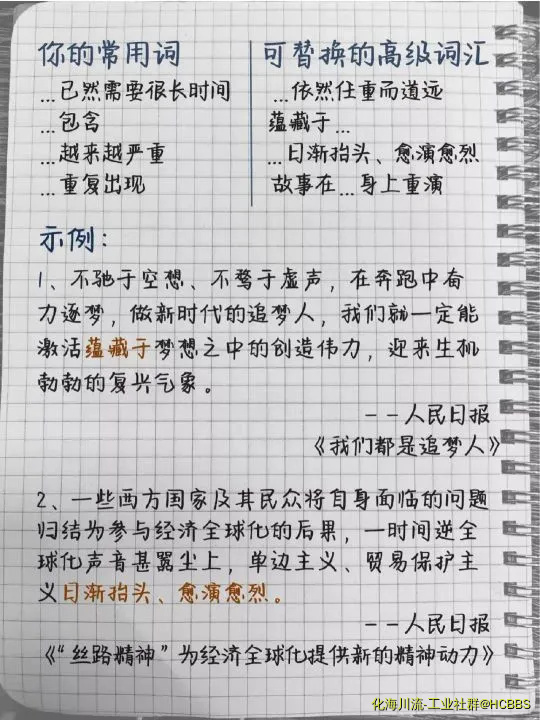 你的常用词
可替换的高级词汇
...已然需要很长时间
...依然任重而道远
...包含
蕴藏于...
...越来越严重
...日渐抬头、愈演愈烈
...重复出现
故事在...身上重演
示例：
1、不驰于空想、不骛于虚声，在奔跑中奋
力逐梦，做新时代的追梦人，我们就一定能
激活蕴藏于梦想之中的创造伟力，迎来生机
勃勃的复兴气象。
——人民日报
《我们都是追梦人》
2、一些西方国家及其民众将自身面临的问题
归结为参与经济全球化的后果，一时间逆全
球化声音甚嚣尘上，单边主义、贸易保护主
义日渐抬头、愈演愈烈。
——人民日报
《“丝路精神”为经济全球化提供新的精神动力》
化海川流-工业社群@HCBBS